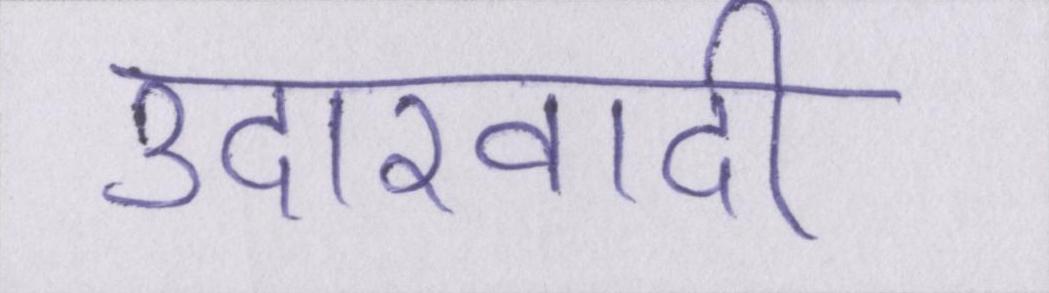 उदारवादी